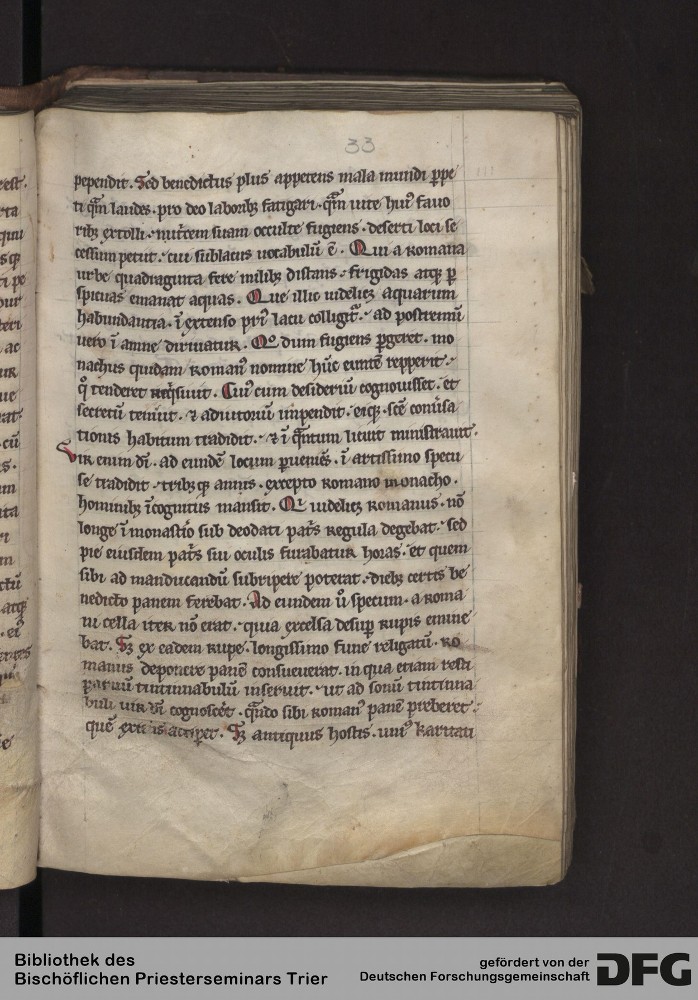 33
pependit. Sed benedictus plus appetens mala mundi ꝑpe
ti q̄m laudes. pro deo laborib; fatigari. q̄m uite huiꝰ fauo
rib; extolli. nutͥcem suam occulte fugiens. deserti loci se
cessum petiit. cui sublacus uocabulū ē. Qui a Romana
urbe quadraginta fere milib; distans. frigidas atq; ꝑ
spicuas emanat aquas. Que illic uidelicꝫ aquarum
habundantia. ī extenso priꝰ lacu colligit᷑. ad postremū
uero ī amne diriuatur. Qͦ dum fugiens ꝑgeret. mo
nachus quidam Romanꝰ nomine hūc euntē repperit.
q̊ tenderet reqͥsiuit. Cuiꝰ cum desideriū cognouisset. et
secretū tenuit. ⁊ adiutoriū impendit. eiq; scē conũsa
tionis habitum tradidit. ⁊ ī q̄ntum licuit ministrauit.
Vir enim dī. ad eundē locum ꝑueniēs. ī artissimo specu
se tradidit. trib; q; annis. excepto Romano monacho.
hominib; īcognitus mansit. Qͥ uidelicꝫ Romanus. nō
longe ī monastͥo sub deodati pat͛s regula degebat. sed
pie eiusdem pat͛s sui oculis furabatur horas. et quem
sibi ad manducandū subripere poterat. dieb; certis be
nedicto panem ferebat. Ad eundem ũ specum. a Roma
ni cella iter nō erat. quia excelsa desuꝑ rupis emine
bat. Sꝫ ex eadem rupe. longissimo fune religatū. Ro
manus deponere panē consueuerat. in qua etiam resti
paruū tintinnabulū inseruit. ut ad sonū tintinna
buli uir dī cognoscet͛. q̄ndo sibi Romanꝰ panē preberet.
quē exiens acciꝑet. Sꝫ antiquus hostis. uniꝰ karitati
Bibliothek des
Bischöflichen Priesterseminars Trier
gefördert von der
Deutschen Forschungsgemeinschaft
DFG